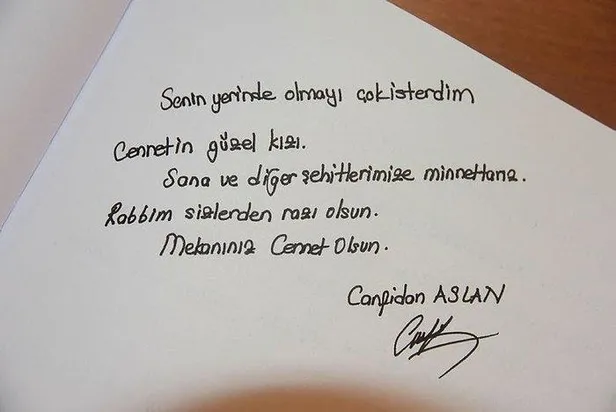 Senin yerinde olmayı çok isterdim
Cennetin güzel kızı.
Sana ve diğer şehitlerimize minnettarız.
Rabbim sizlerden razı olsun.
Mekanınız Cennet Olsun.
Canfidan ASLAN